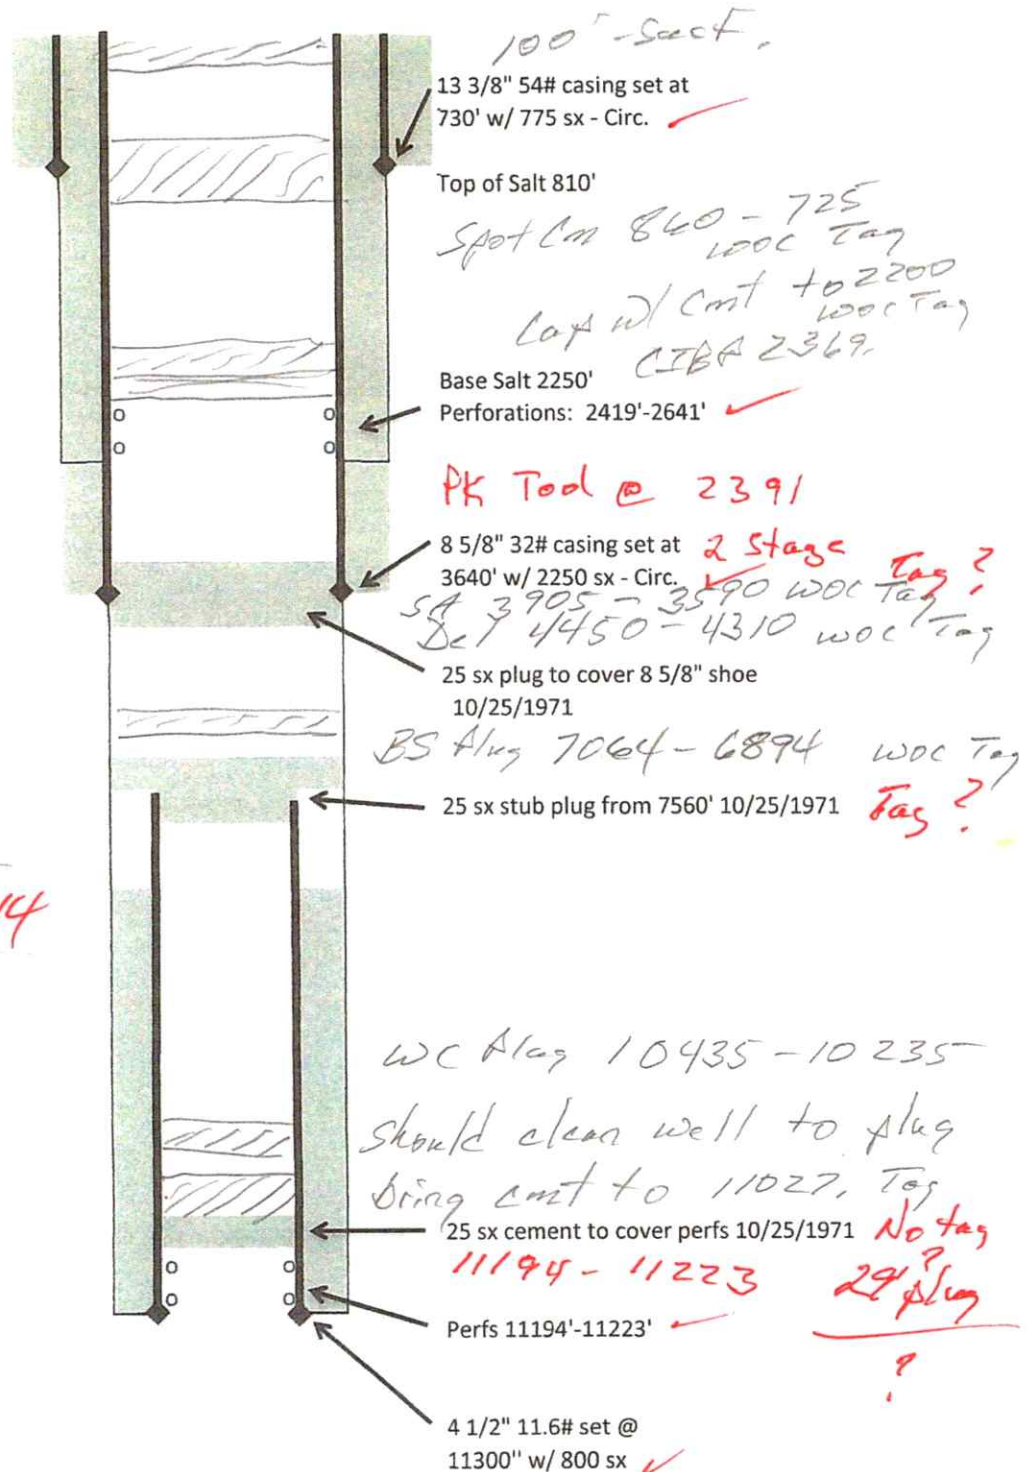 100' - Surf.
13 3/8" 54# casing set at
730' w/ 775 sx - Circ.
Top of Salt 810'
Spot Cm 860 - 725
WOC Tag
Cap w/ Cmt to 2200
WOC Tag
CIBP 2369.
Base Salt 2250'
Perforations: 2419'-2641'
PK Tool @ 2391
8 5/8" 32# casing set at 2 Stage
3640' w/ 2250 sx - Circ. Tag ?
SA 3905 - 3590 WOC Tag
Del 4450 - 4310 WOC Tag
25 sx plug to cover 8 5/8" shoe
10/25/1971
BS Plug 7064 - 6894 WOC Tag
25 sx stub plug from 7560' 10/25/1971 Tag ?
14
WC Plug 10435 - 10235
Should clean well to plug
bring cmt to 11027, Tag
25 sx cement to cover perfs 10/25/1971 No tag
?
11194 - 11223 29' plug
Perfs 11194'-11223'
?
4 1/2" 11.6# set @
11300" w/ 800 sx